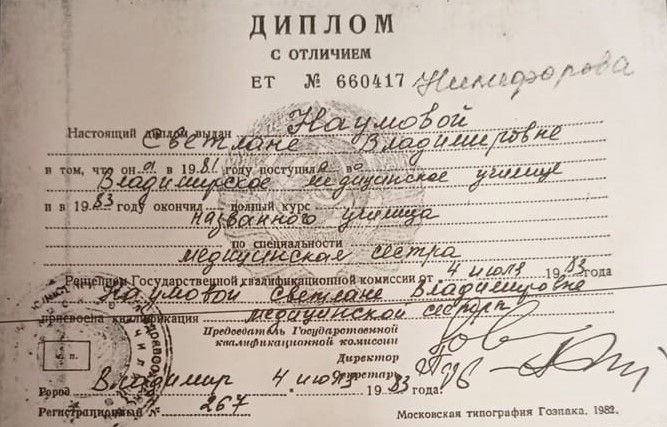 ДИПЛОМ
С ОТЛИЧИЕМ
ЕТ № 660417 Никифорова
Настоящий диплом выдан Наумовой
Светлане Владимировне
в том, что он а в 1981 году поступил а в о
Владимирское медицинское училище
и в 1983 году окончил полный курс
названного училища
по специальности
медицинская сестра
Решением Государственной квалификационной комиссии от 4 июля 1983 года
Наумовой Светлане Владимировне
присвоена квалификация медицинской сестры
Председатель Государственной
квалификационной комиссии
Директор
Секретарь
Город Владимир 4 июля 1983 года.
Регистрационный № 267
Московская типография Гознака. 1982.